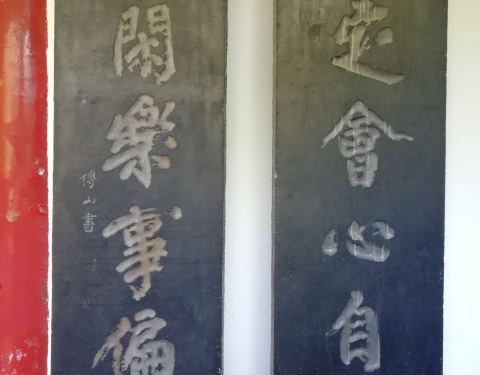 定會心自
閑樂事偏
傅山書